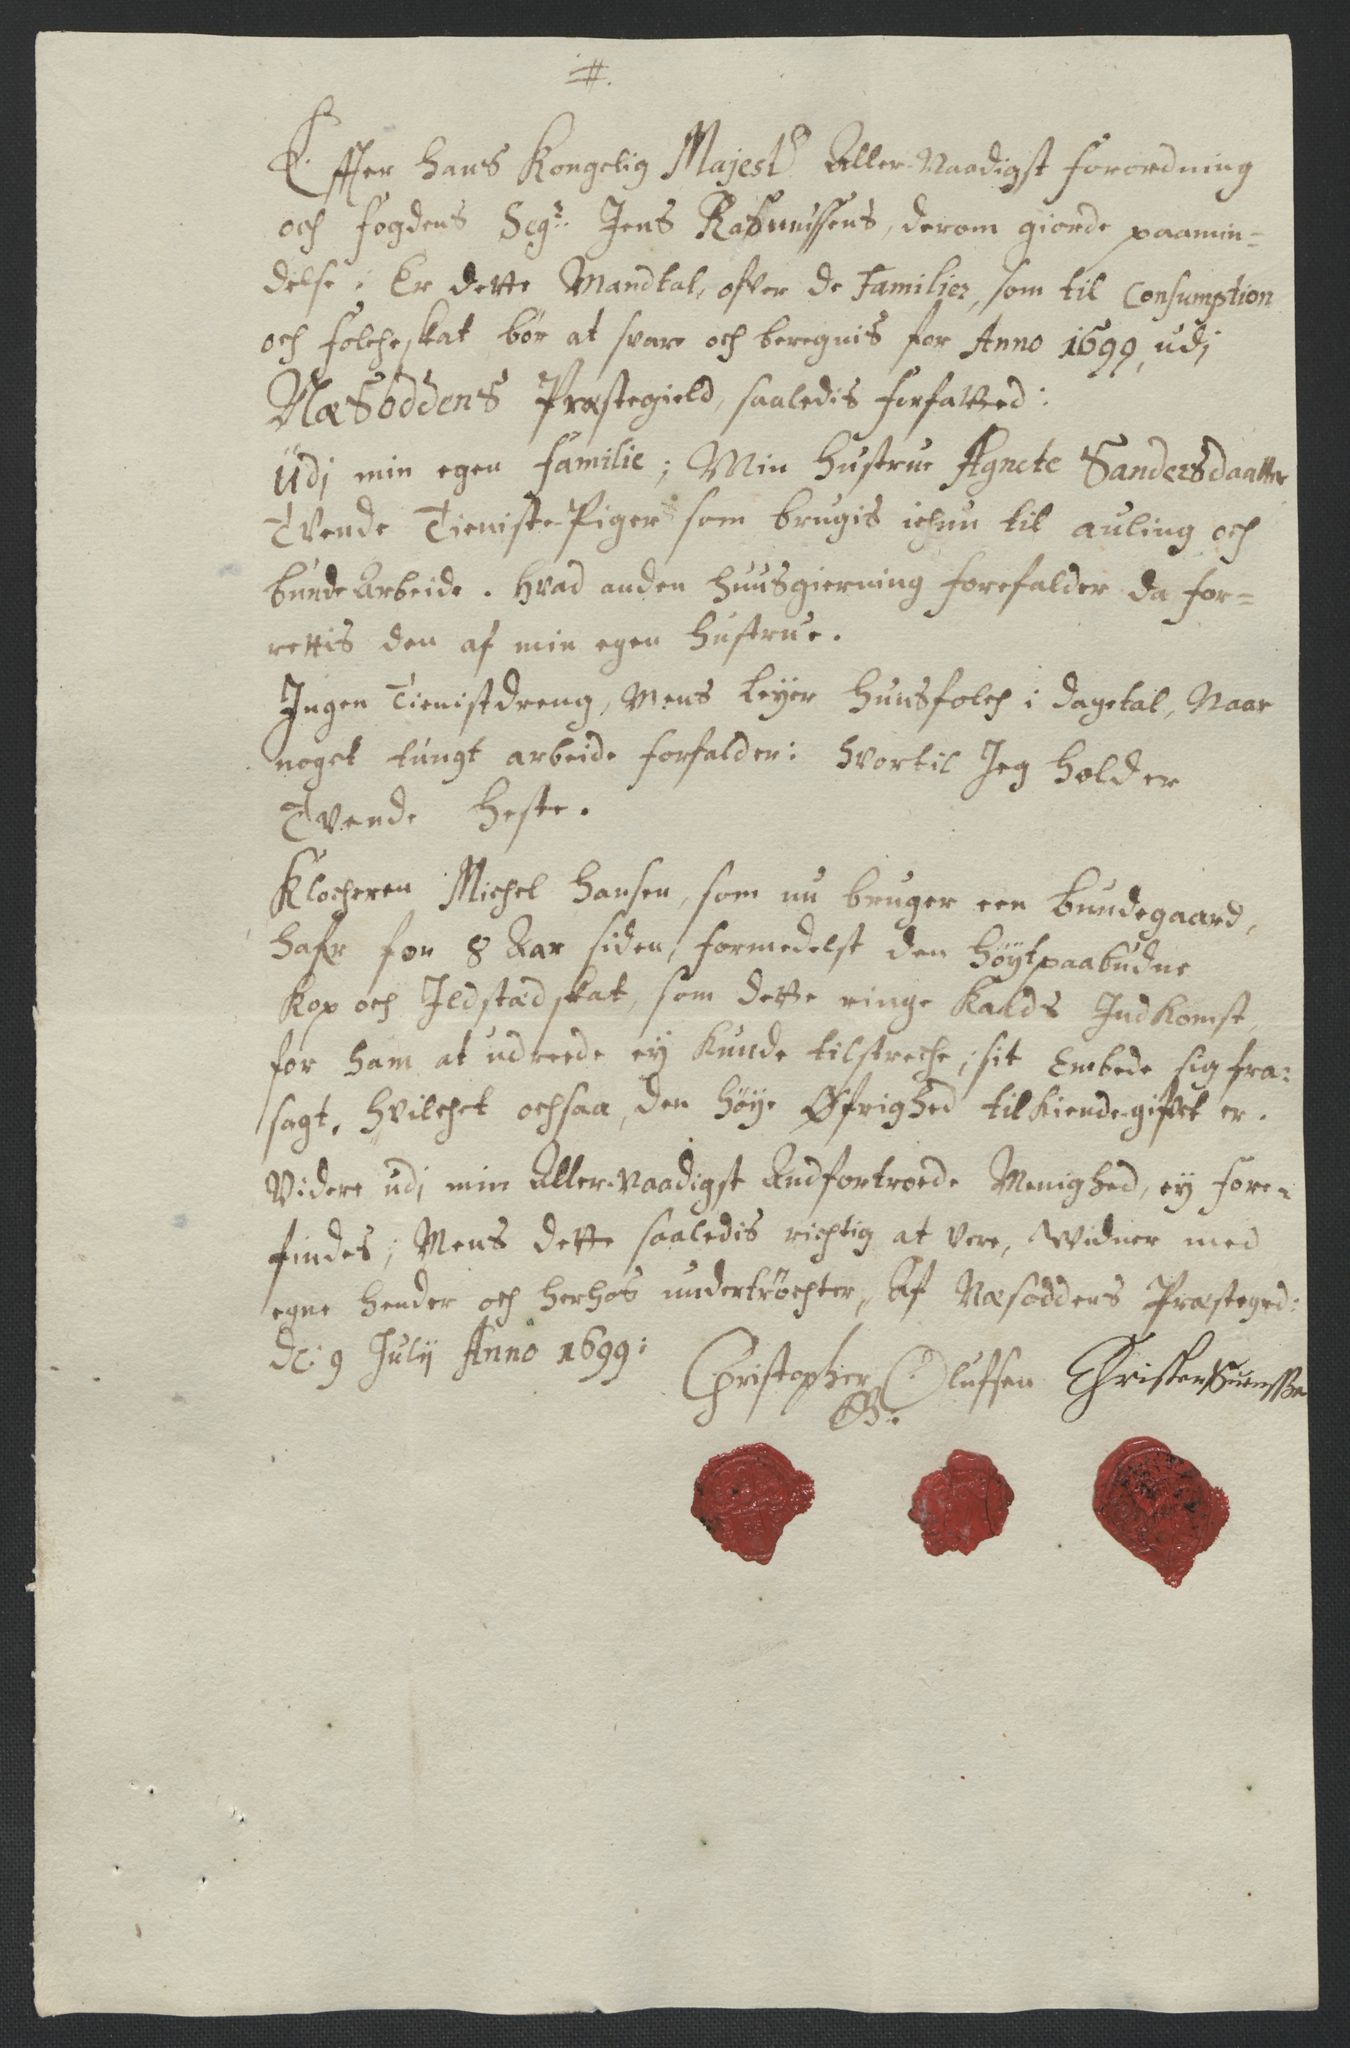 #.
Effter Hans Kongelig Majest: Aller-Naadigst forordning
och fogdens Sigr: Jens Rasmussens, derom giorde paamin=
delse: Er dette Mandtal, ofver de Familier, som til Consumption
och folcheskat bør at svare och beregnis for Anno 1699, udj
Næsoddens Præstegield, saaledis forfatted:
Udj min egen familie; Min Hustrue Agnete Sandersdaatter
Tvende Tieniste-Piger som brugis ichun til auling och
bunde Arbeide. Hvad anden huusgierning forefalder da for=
rettis den af min egen Hustrue.
Ingen Tienistdreng, Mens leyer huusfolch i dagetal, Naar
noget tungt arbeide forfalder: Hvortil Jeg holder
Tvende Heste.
Klocheren Michel Hansen, som nu bruger een bundegaard,
hafr for 8 Aar siden, formedelst den høytpaabudne
Kop och Ildstædskat, som dette ringe Kalds Indkomst,
for ham at udreede ey kunde tilstreche; sit Embede sig fra=
sagt, hvilchet ochsaa, den høye Øfrighed tilkiende-gifvet er.
Videre udj min Aller-Naadigst Andfortroede Menighed, ey fore=
findes; Mens dette saaledis richtig at vere, Widner med
egne hender och herhos undertrøchter, Af Næsoddens Præstegrd:
dc: 9 Julij Anno 1699:
Christopher Oluffsen Christen Suenssen